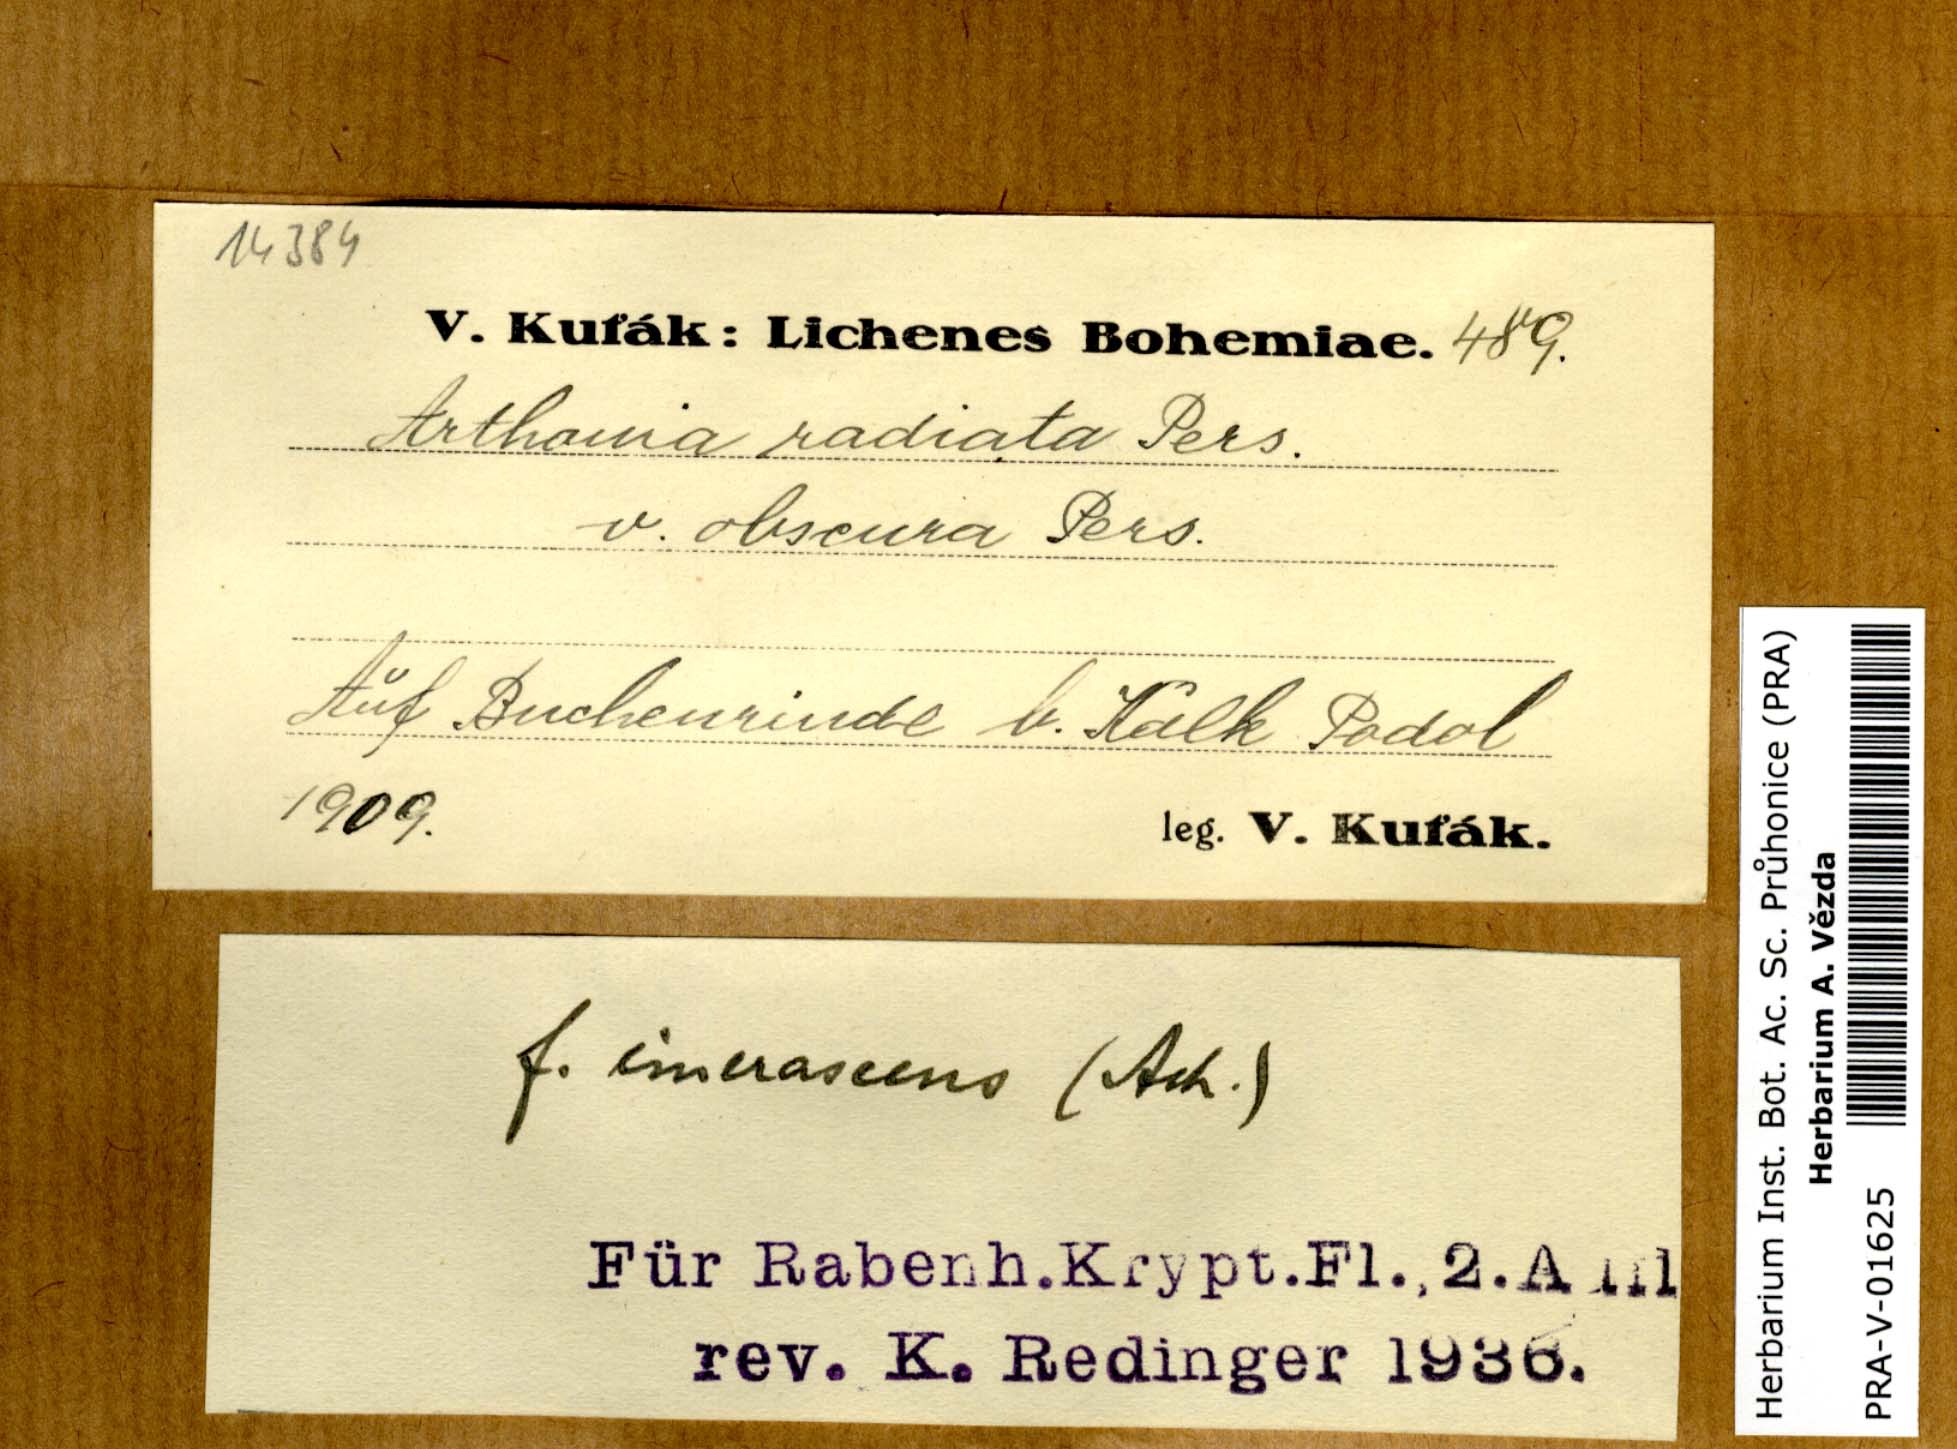 14384
V. Kuťák: Lichenes Bohemiae. 489.
Arthonia radiata Pers.
v. obscura Pers.
Auf Buchenrinde b. Kalk Podol
1909.
leg. V. Kuťák.
f. cinerascens (Ach.)
Für Rabenh.Krypt.Fl., 2. Aufl
rev. K. Redinger 1936.
Herbarium Inst. Bot. Ac. Sc. Průhonice (PRA)
Herbarium A. Vězda
PRA-V-01625